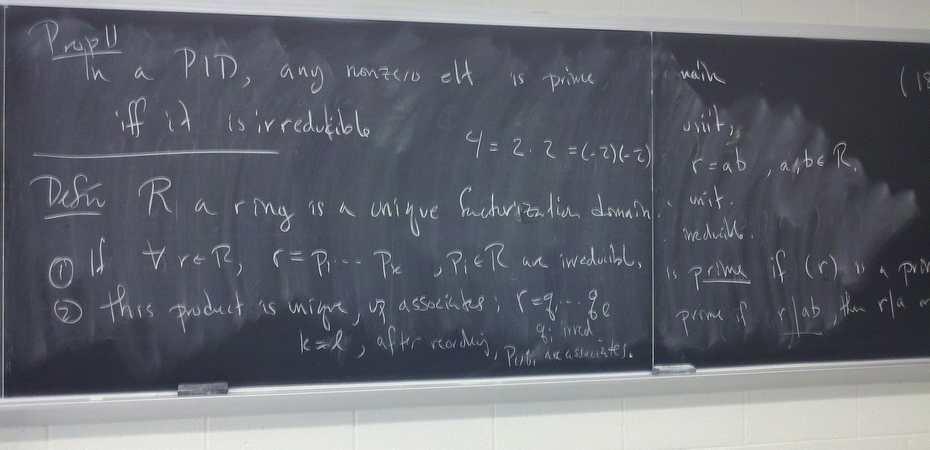 Prop 11
In a PID, any nonzero elt is prime
iff it is irreducible
4 = 2 · 2 = (-2)(-2)
Defn R a ring is a unique factorization domain.
① If ∀ r ∈ R, r = p₁ ⋯ pₖ, pᵢ ∈ R are irreducible,
② this product is unique, up associates; r = q₁ ⋯ qₗ
qᵢ irred
k = l, after reording, pᵢ, qᵢ are associates.
unit,
r = ab, a, b ∈ R,
unit.
irreducible.
is prime if (r) is a prim
prime if r | ab, then r | a